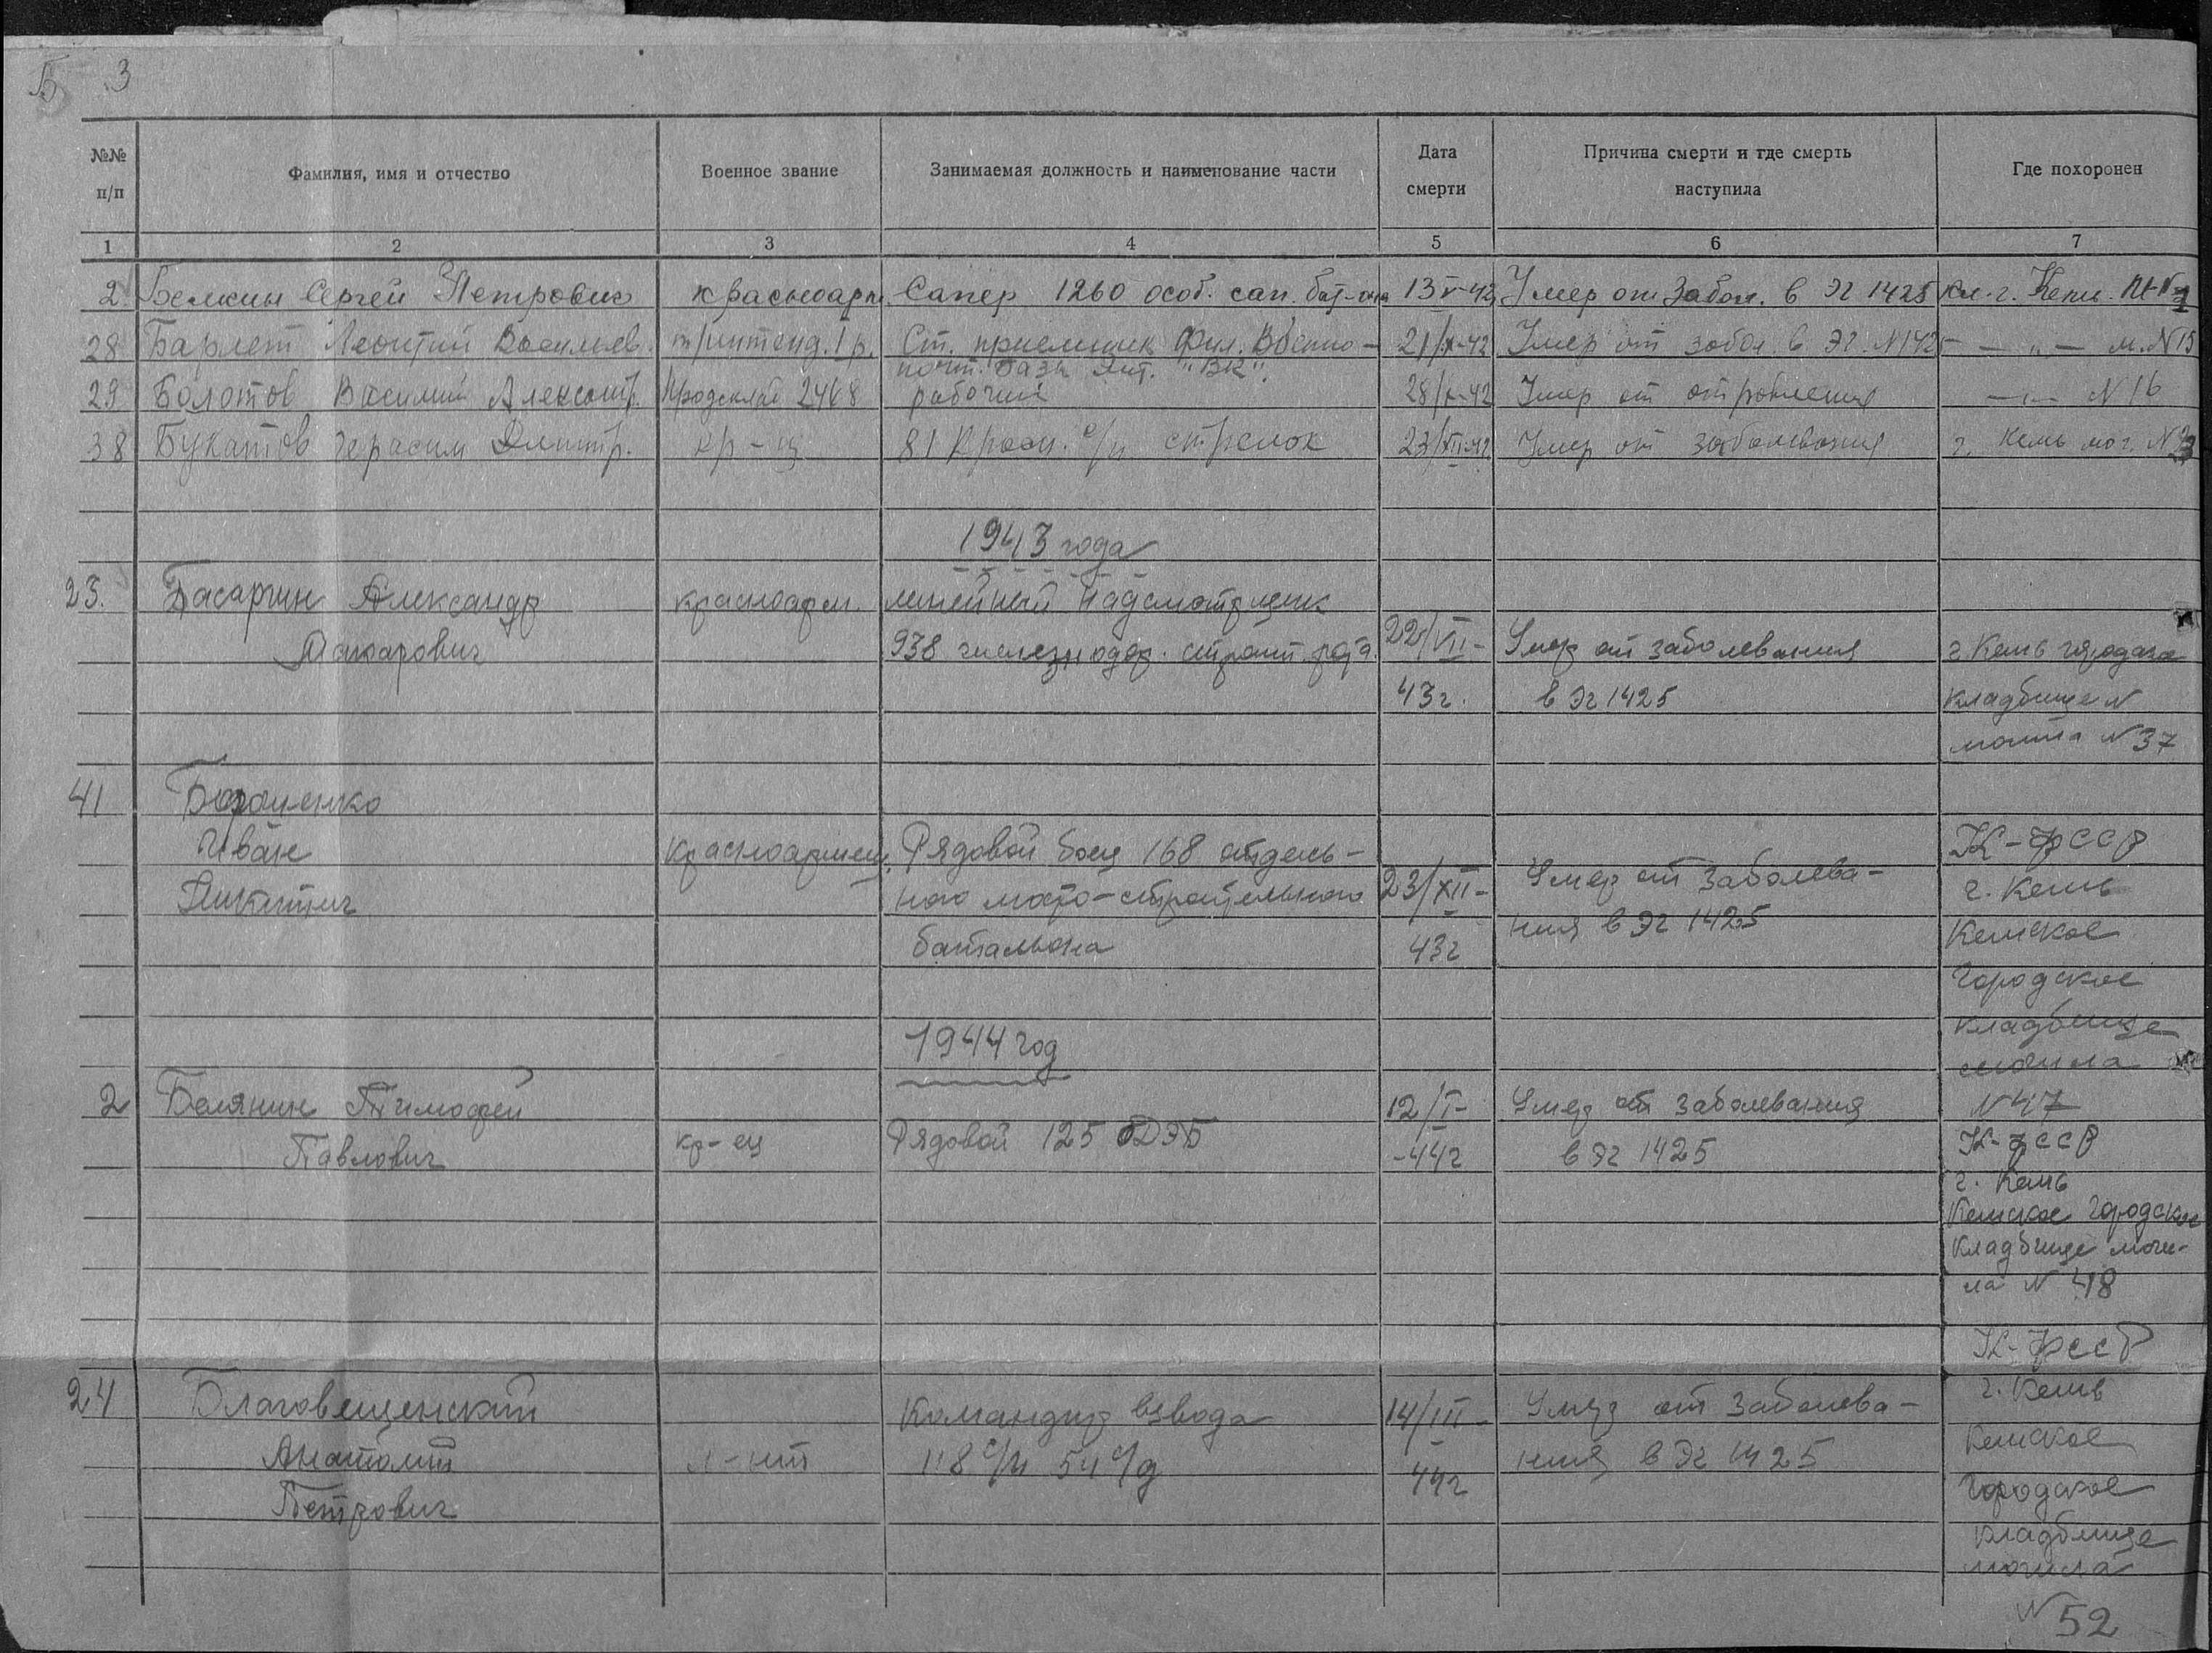 Б 3
№№ п/п
Фамилия, имя и отчество
Военное звание
Занимаемая должность и наименование части
Дата смерти
Причина смерти и где смерть наступила
Где похоронен
1 2 3 4 5 6 7
2 Белкин Сергей Петрович красноарм. Сапер 1260 особ. сап. бат-она 13 V-42 Умер от забол. в ЭГ 1425 Кл. г. Кемь
28 Барлет Леонтий Васильев. т/интенд. I р. Ст. приемщик Фил. Военно- 21/X-42 Умер от забол. в ЭГ. N 1425 — „ — м. N 15
почт. базы "ВК".
29 Болотов Василий Александр. Продсклад 2468 рабочий 28/X-42 Умер от отравления — „ — N 16
38 Букатов Герасим Дмитр. кр-ц 81 Красн. с/п стрелок 23/XII-42 Умер от заболевания г. Кемь мог. N 23
1943 года
23. Басаргин Александр красноарм. линейный надсмотрщик
Макарович 938 железнодор. строит. рота. 22/VII- Умер от заболевания г. Кемь городское
43г. в ЭГ 1425 кладбище N
могила N 37
41 Бораненко
Иван красноармеец. Рядовой боец 168 отдель- К-ФССР
Никитич ного мосто-строительного 23/XII- Умер от заболева- г. Кемь
батальона 43г ния в ЭГ 1425 Кемское
Городское
1944 год кладбище
могила
2 Белянин Тимофей 12/I- Умер от заболевания N 47
Павлович кр-ец Рядовой 125 ОДЭБ -44г в ЭГ 1425 К-ФССР
г. Кемь
Кемское Городское
кладбище моги-
ла N 48
К-ФССР
24 Благовещенский Командир взвода 14/III- Умер от заболева- г. Кемь
Анатолий л-нт 118 с/п 54 с/д 44г ния в ЭГ 1425 Кемское
Петрович Городское
кладбище
могила
N 52